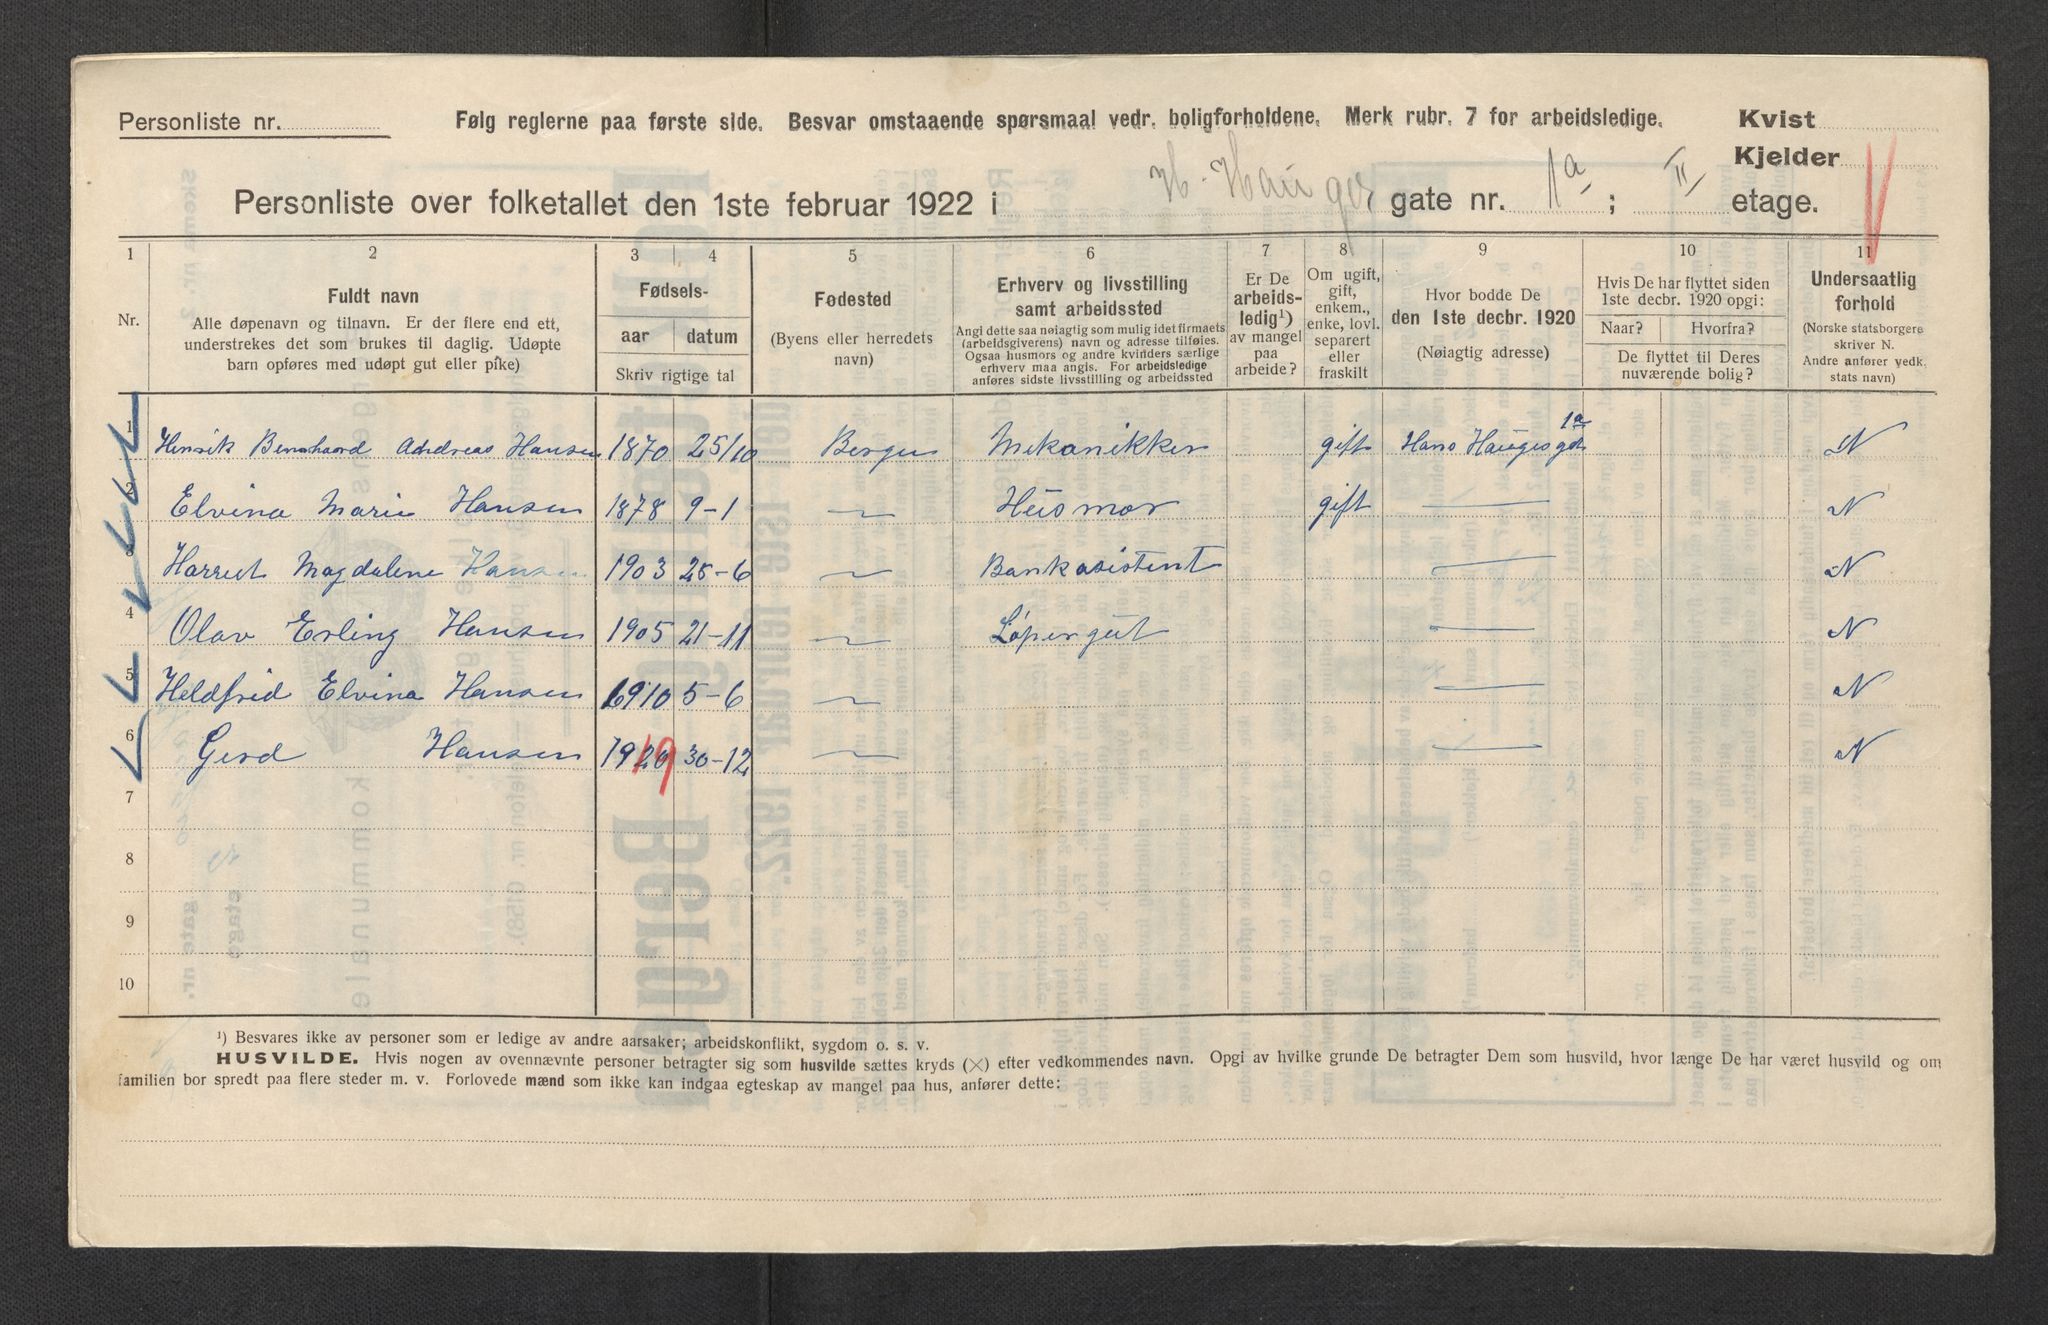 Personliste nr.
Følg reglerne paa første side. Besvar omstaaende spørsmaal vedr. boligforholdene. Merk rubr. 7 for arbeidsledige.
Kvist
Kjelder
Personliste over folketallet den 1ste februar 1922 i H. Hauges gate nr. 1a ; II etage.
1 2 3 4 5 6 7 8 9 10 11
Nr.
Fuldt navn
Alle døpenavn og tilnavn. Er der flere end ett,
understrekes det som brukes til daglig. Udøpte
barn opføres med udøpt gut eller pike)
Fødsels-
aar datum
Skriv rigtige tal
Fødested
(Byens eller herredets
navn)
Erhverv og livsstilling
samt arbeidssted
Angi dette saa nøiagtig som mulig idet firmaets
(arbeidsgiverens) navn og adresse tilføies.
Ogsaa husmors og andre kvinders særlige
erhverv maa angis. For arbeidsledige
anføres sidste livsstilling og arbeidssted
Er De
arbeids-
ledig¹)
av mangel
paa
arbeide?
Om ugift,
gift,
enkem.,
enke, lovl.
separert
eller
fraskilt
Hvor bodde De
den 1ste decbr. 1920
(Nøiagtig adresse)
Hvis De har flyttet siden
1ste decbr. 1920 opgi:
Naar? Hvorfra?
De flyttet til Deres
nuværende bolig?
Undersaatlig
forhold
(Norske statsborgere
skriver N.
Andre anfører vedk.
stats navn)
1 Henrik Bernhard Andreas Hansen 1870 25/10 Bergen Mekanikker gift Hans Hauges gd 1a N
2 Elvina Marie Hansen 1878 9-1 — Husmor gift — N
3 Harriet Magdalene Hansen 1903 25-6 — Bankasistent — N
4 Olav Erling Hansen 1905 21-11 — Løpergut — N
5 Heldfrid Elvina Hansen 1910 5-6 — — N
6 Gerd Hansen 1920 19 30-12 — — N
7
8
9
10
¹) Besvares ikke av personer som er ledige av andre aarsaker; arbeidskonflikt, sygdom o. s. v.
HUSVILDE. Hvis nogen av ovennævnte personer betragter sig som husvilde sættes kryds (×) efter vedkommendes navn. Opgi av hvilke grunde De betragter Dem som husvild, hvor længe De har været husvild og om
familien bor spredt paa flere steder m. v. Forlovede mænd som ikke kan indgaa egteskap av mangel paa hus, anfører dette: